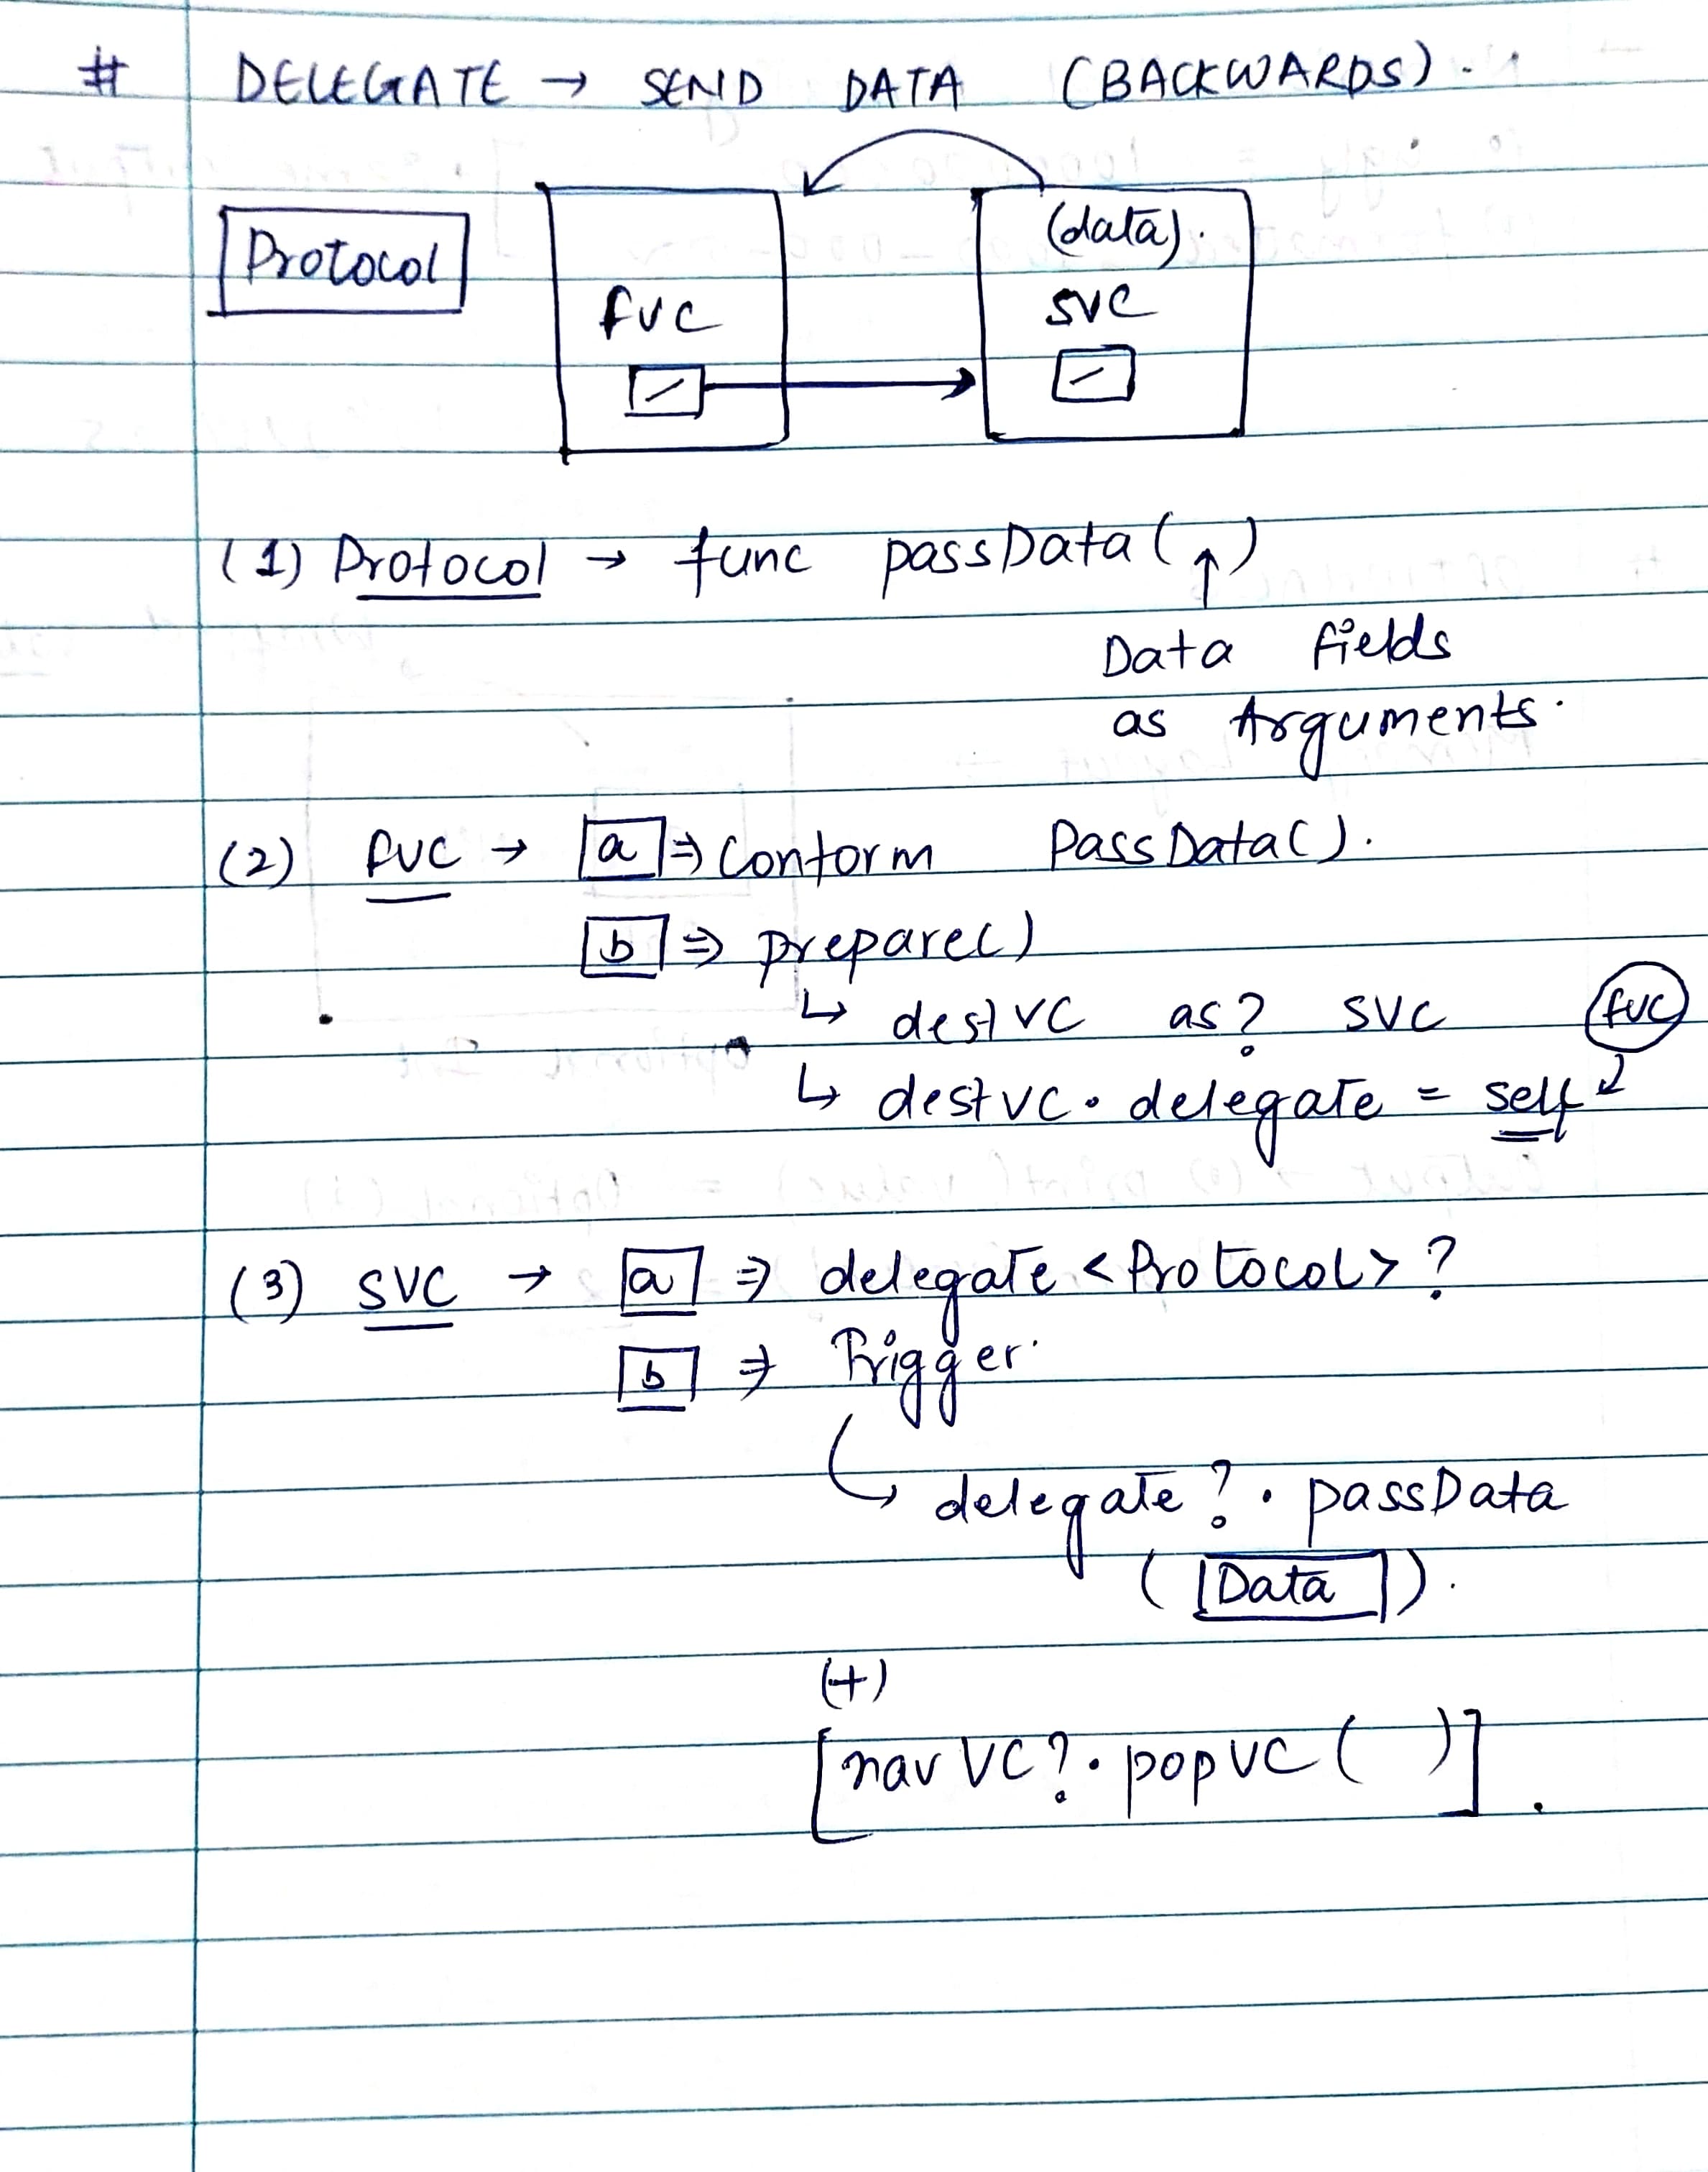 # DELEGATE → SEND DATA (BACKWARDS).
Protocol
(data).
fvc
svc
(1) Protocol → func passData(↑)
Data fields
as Arguments.
(2) fvc → a ⇒ Conform PassData().
b ⇒ prepare()
↳ destVC as? SVC
fvc
↳ destVC.delegate = self
(3) SVC → a ⇒ delegate <Protocol>?
b ⇒ Trigger.
↳ delegate?.passData
(Data).
(+)
[navVC?.popVC( )].